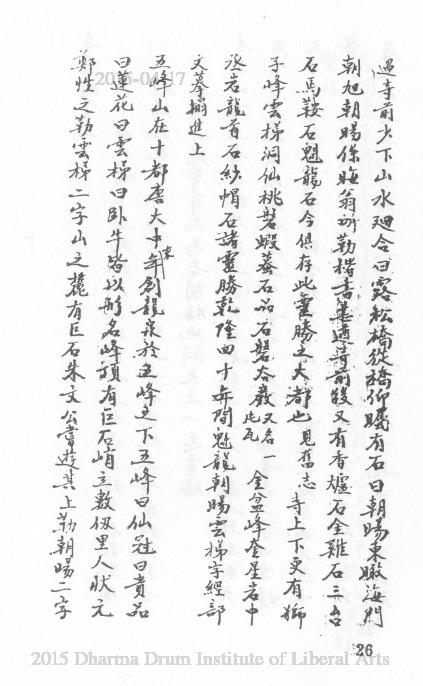 過寺前少下山水廻合曰露松橋從橋仰矚有石曰朝陽東瞰海門
朝旭朝暘係晦翁所勒楷書甚遒寺前後又有香爐石金雞石三台
石馬鞍石魁龍石今俱存此靈勝之大都也見舊志 寺上下更有獅
子峰雲梯洞仙桃磐蝦蟇石品石磐谷巖又名一片瓦 金盆峰奎星岩中
丞岩龍首石紗帽石諸靈勝乾隆四十年間魁龍朝陽雲梯字經部
文摹搨進上
五峰山在十都唐大中年創龍泉於五峰之下五峰曰仙冠曰貴品
曰蓮花曰雲梯曰卧牛皆以形名峰頂有巨石峭立數仭里人狀元
鄭性之勒雲梯二字山之麓有巨石朱文公嘗遊其上勒朝陽二字
2015-04-17
26
2015 Dharma Drum Institute of Liberal Arts